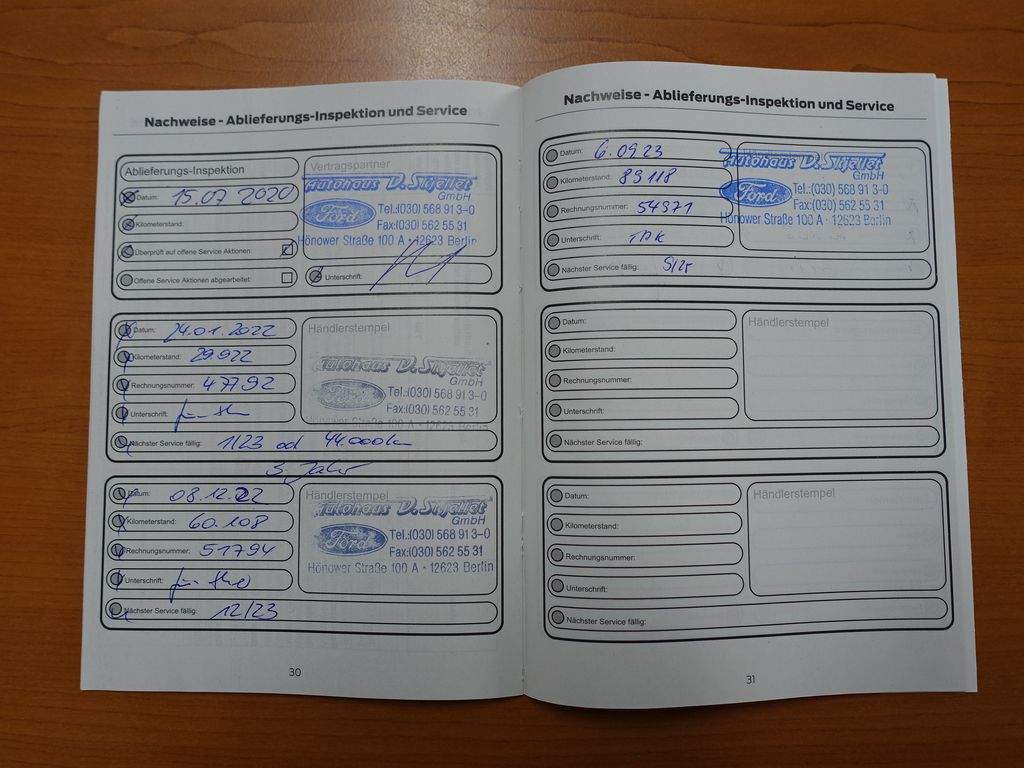 Nachweise - Ablieferungs-Inspektion und Service
Ablieferungs-Inspektion
Datum: 15.07 2020
Kilometerstand:
Überprüft auf offene Service Aktionen:
Offene Service Aktionen abgearbeitet:
Vertragspartner
Autohaus
GmbH
Ford
Tel.:(030) 568 91 3-0
Fax:(030) 562 55 31
Hönower Straße 100 A · 12623 Berlin
Unterschrift:
Datum: 24.01.2022
Kilometerstand: 29.922
Rechnungsnummer: 47792
Unterschrift:
Nächster Service fällig: 1/23 od 44.000km
3. Jahr
Händlerstempel
Autohaus
GmbH
Ford
Tel.:(030) 568 91 3-0
Fax:(030) 562 55 31
Hönower Straße 100 A · 12623 Berlin
Datum: 08.12.22
Kilometerstand: 60.108
Rechnungsnummer: 51794
Unterschrift:
Nächster Service fällig: 12/23
Händlerstempel
Autohaus
GmbH
Ford
Tel.:(030) 568 91 3-0
Fax:(030) 562 55 31
Hönower Straße 100 A · 12623 Berlin
30
Nachweise - Ablieferungs-Inspektion und Service
Datum: 6.09 23
Kilometerstand: 89118
Rechnungsnummer: 54971
Unterschrift:
Nächster Service fällig:
Händlerstempel
Autohaus
GmbH
Ford
Tel.:(030) 568 91 3-0
Fax:(030) 562 55 31
Hönower Straße 100 A · 12623 Berlin
Datum:
Kilometerstand:
Rechnungsnummer:
Unterschrift:
Nächster Service fällig:
Händlerstempel
Datum:
Kilometerstand:
Rechnungsnummer:
Unterschrift:
Nächster Service fällig:
Händlerstempel
31